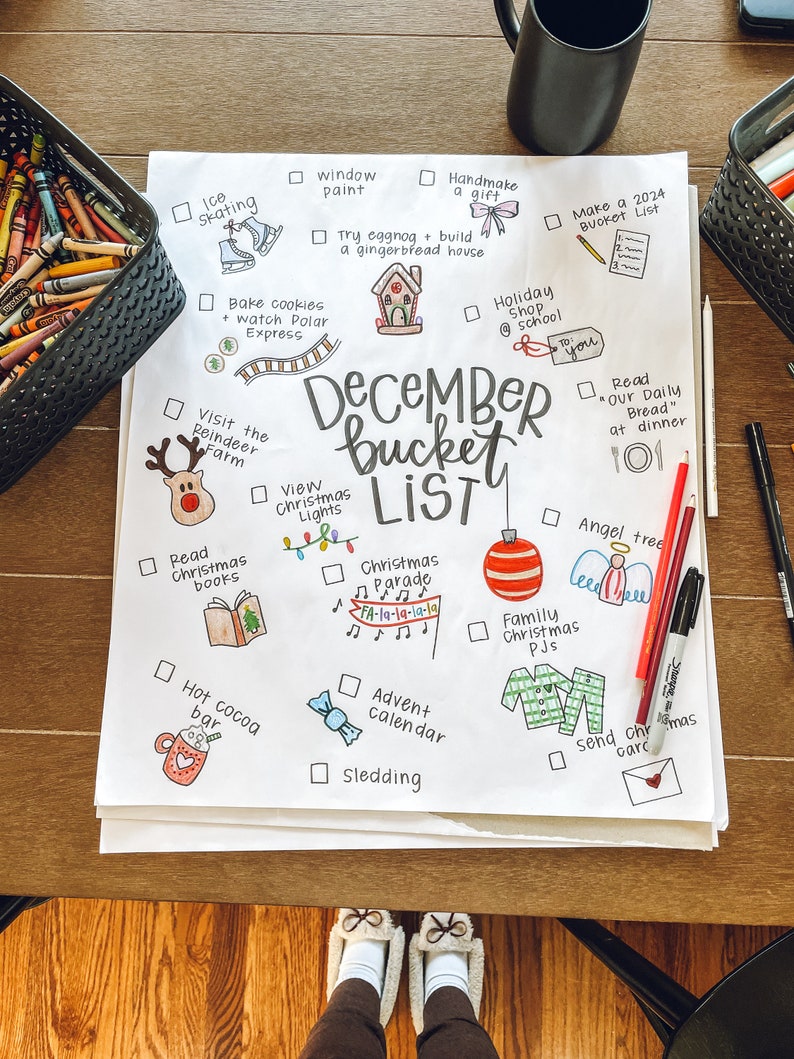 Ice
skating
window
paint
Handmake
a gift
Make a 2024
Bucket List
1.
2.
3.
Try eggnog + build
a gingerbread house
Bake cookies
+ watch Polar
Express
Holiday
Shop
@ school
to:
you
DECEMBER
bucket
LIST
Read
"Our Daily
Bread"
at dinner
Visit the
Reindeer
Farm
View
Christmas
Lights
Angel tree
Read
Christmas
books
Christmas
parade
FA-la-la-la-la
Family
Christmas
PJs
Hot cocoa
bar
Advent
calendar
Sledding
Send Christmas
Sharpie